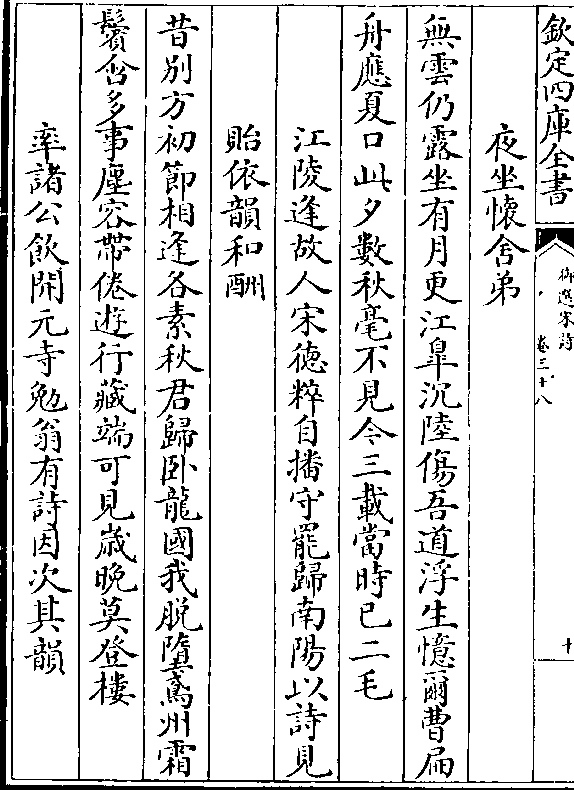 欽定四庫全書
御選宋詩
卷三十八
十
夜坐懷舍弟
無雲仍露坐有月更江臯沉陸傷吾道浮生憶爾曹扁
舟應夏口此夕數秋毫不見今三載當時已二毛
江陵逢故人宋徳粹自播守罷歸南陽以詩見
貽依韻和酬
昔别方初節相逢各素秋君歸卧龍國我脱墮鳶州霜
鬢畬多事塵容帶倦遊行藏端可見嵗晚莫登樓
率諸公飲開元寺勉翁有詩因次其韻